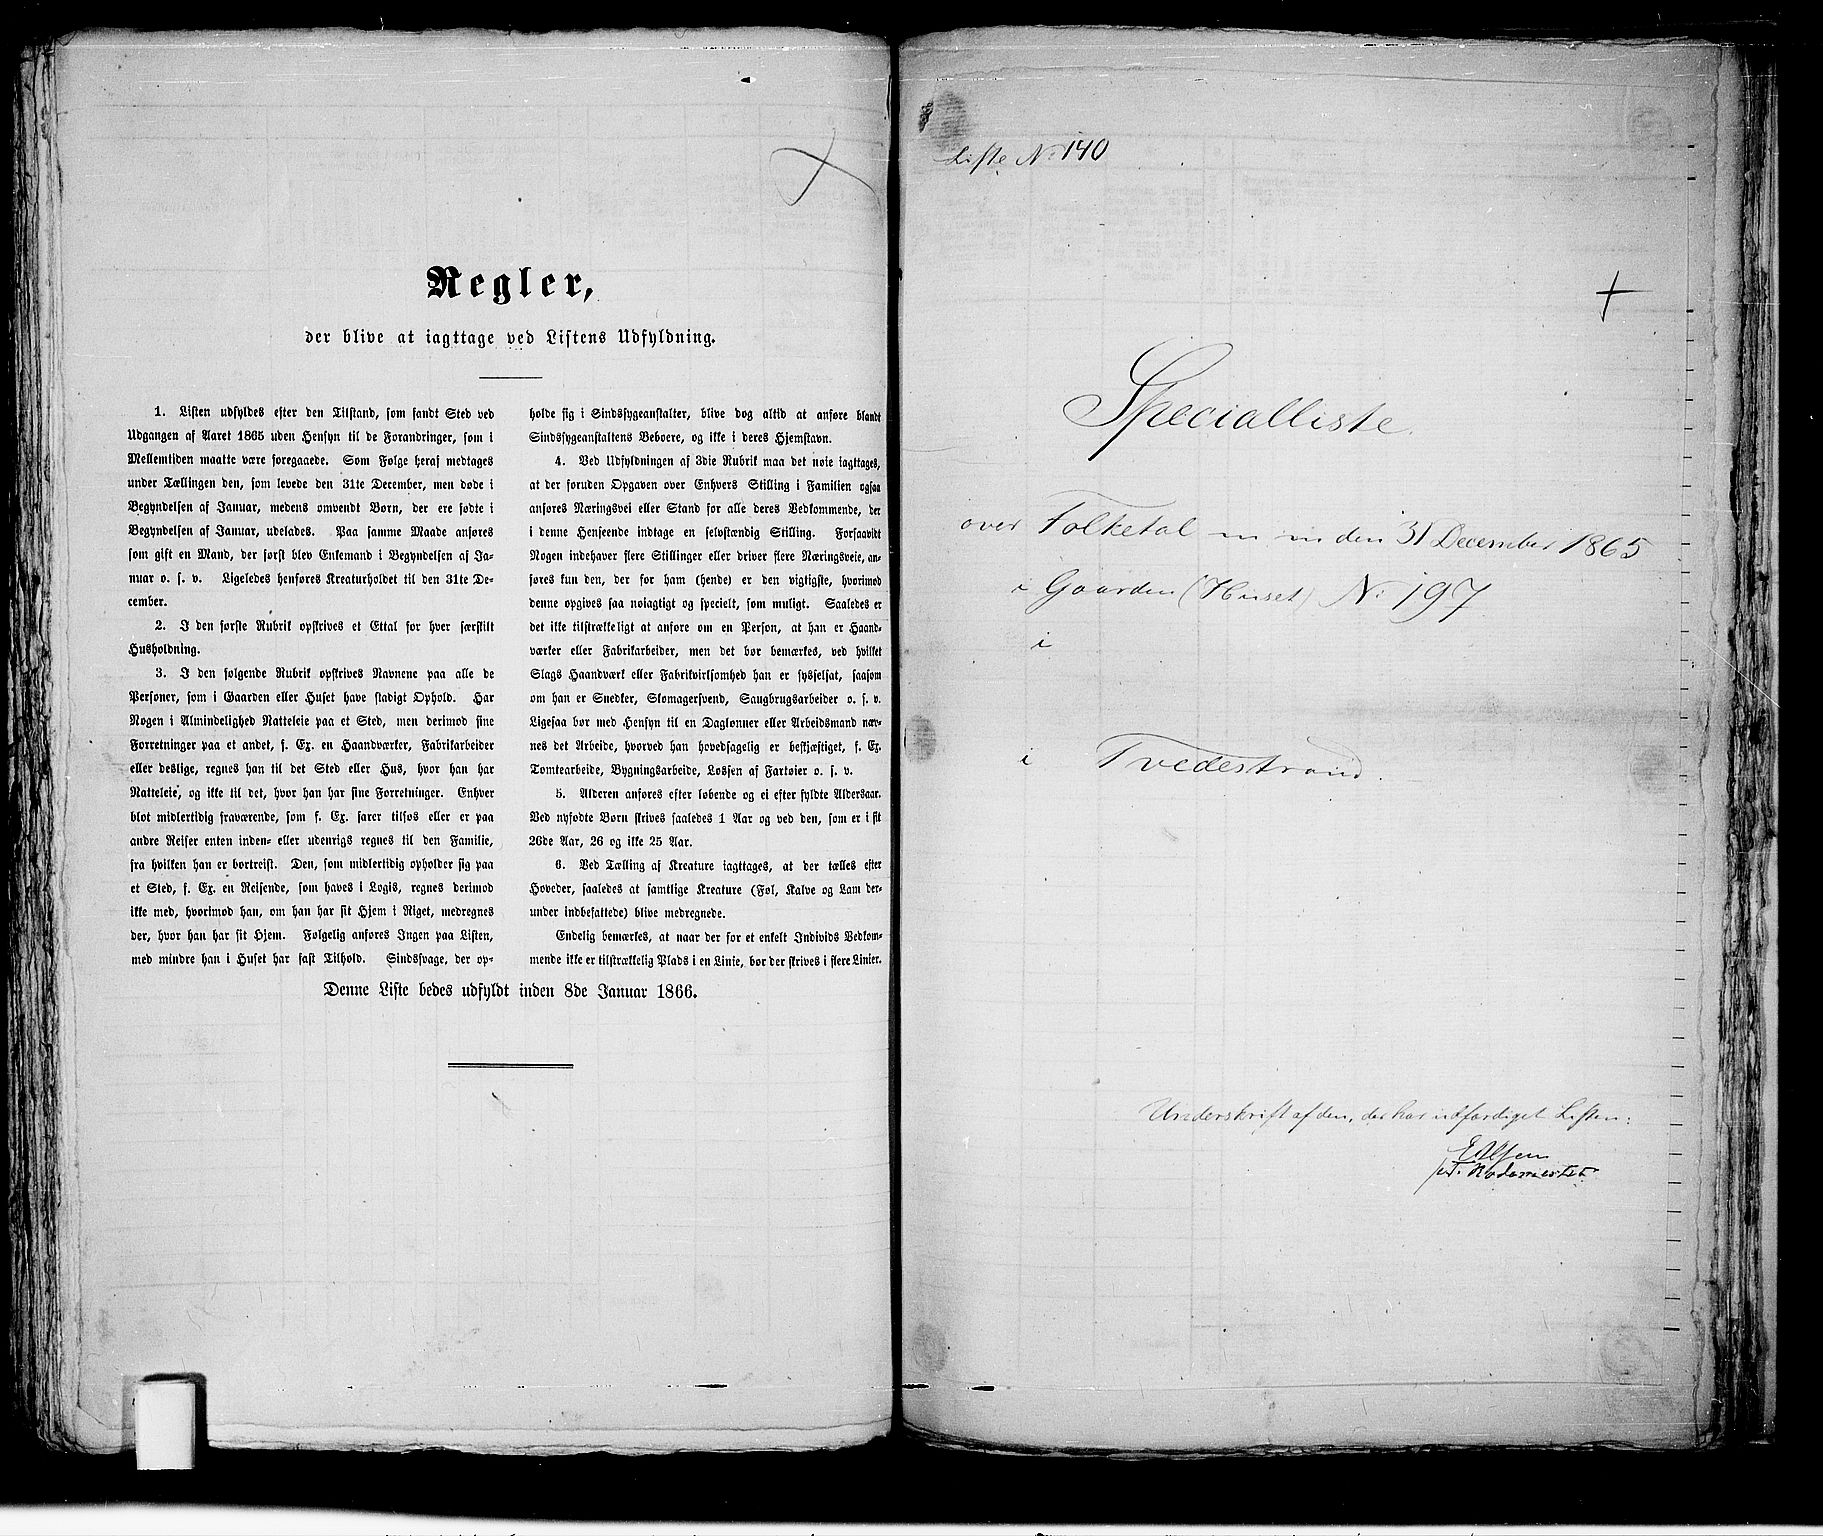 Regler,
der blive at iagttage ved Listens Udfyldning.
1. Listen udfyldes efter den Tilstand, som fandt Sted ved
Udgangen af Aaret 1865 uden Hensyn til de Forandringer, som i
Mellemtiden maatte være foregaaede. Som Følge heraf medtages
under Tællingen den, som levede den 31te December, men døde i
Begyndelsen af Januar, medens omvendt Børn, der ere fødte i
Begyndelsen af Januar, udelades. Paa samme Maade anføres
som gift en Mand, der først blev Enkemand i Begyndelsen af Ja-
nuar o. s. v. Ligeledes henføres Kreaturholdet til den 31te De-
cember.
2. I den første Rubrik opskrives et Ettal for hver særskilt
Husholdning.
3. I den følgende Rubrik opskrives Navnene paa alle de
Personer, som i Gaarden eller Huset have stadigt Ophold. Har
Nogen i Almindelighed Natteleie paa et Sted, men derimod sine
Forretninger paa et andet, f. Ex. en Haandværker, Fabrikarbeider
eller deslige, regnes han til det Sted eller Hus, hvor han har
Natteleie, og ikke til det, hvor han har sine Forretninger. Enhver
blot midlertidig fraværende, som f. Ex. farer tilsøs eller er paa
andre Reiser enten inden- eller udenrigs regnes til den Familie,
fra hvilken han er bortreist. Den, som midlertidig opholder sig paa
et Sted, f. Ex. en Reisende, som haves i Logis, regnes derimod
ikke med, hvorimod han, om han har sit Hjem i Riget, medregnes
der, hvor han har sit Hjem. Følgelig anføres Ingen paa Listen,
med mindre han i Huset har fast Tilhold. Sindssvage, der op-
holde sig i Sindssygeanstalter, blive dog altid at anføre blandt
Sindssygeanstaltens Beboere, og ikke i deres Hjemstavn.
4. Ved Udfyldningen af 3die Rubrik maa det nøie iagttages,
at der foruden Opgaven over Enhvers Stilling i Familien ogsaa
anføres Næringsvei eller Stand for alle deres Vedkommende, der
i denne Henseende indtage en selvstændig Stilling. Forsaavidt
Nogen indehaver flere Stillinger eller driver flere Næringsveie, an-
føres kun den, der for ham (hende) er den vigtigste, hvorimod
denne opgives saa nøiagtigt og specielt, som muligt. Saaledes er
det ikke tilstrækkeligt at anføre om en Person, at han er Haand-
værker eller Fabrikarbeider, men det bør bemærkes, ved hvilket
Slags Haandværk eller Fabrikvirksomhed han er sysselsat, saasom
om han er Snedker, Skomagersvend, Saugbrugsarbeider o. s. v.
Ligesaa bør med Hensyn til en Daglønner eller Arbeidsmand næv-
nes det Arbeide, hvorved han hovedsagelig er beskjæftiget, f. Ex.
Tomtearbeide, Bygningsarbeide, Losfen af Fartøier o. s. v.
5. Alderen anføres efter løbende og ei efter fyldte Aldersaar.
Ved nyfødte Børn skrives saaledes 1 Aar og ved den, som er i sit
26de Aar, 26 og ikke 25 Aar.
6. Ved Tælling af Kreature iagttages, at der tælles efter
Hoveder, saaledes at samtlige Kreature (Føl, Kalve og Lam der-
under indbefattede) blive medregnede.
Endelig bemærkes, at naar der for et enkelt Individs Vedkom-
mende ikke er tilstrækkelig Plads i en Linie, bør der skrives i flere Linier.
Denne Liste bedes udfyldt inden 8de Januar 1866.
Liste No 140
Specialliste
over Folketal m m den 31 December 1865
i Gaarden (Huset) No 197
i
i Tvedestrand.
Underskrift af den, der har udfærdiget Listen: